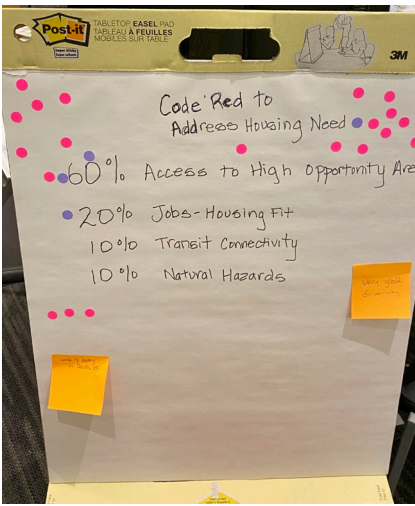 Post-it
Super Sticky
TABLETOP EASEL PAD
TABLEAU À FEUILLES
MOBILES SUR TABLE
3M
Code Red to
Address Housing Need
60% Access to High Opportunity Are
20% Jobs-Housing Fit
10% Transit Connectivity
10% Natural Hazards
Very good